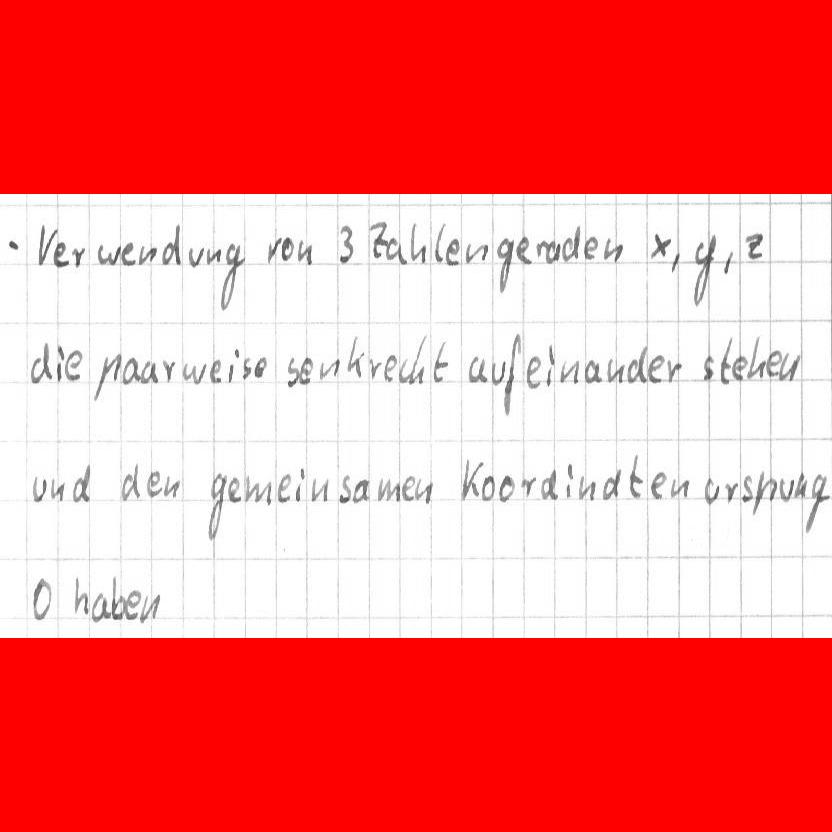 · Verwendung von 3 Zahlengeraden x, y, z
die paarweise senkrecht aufeinander stehen
und den gemeinsamen Koordindten urspung
0 haben